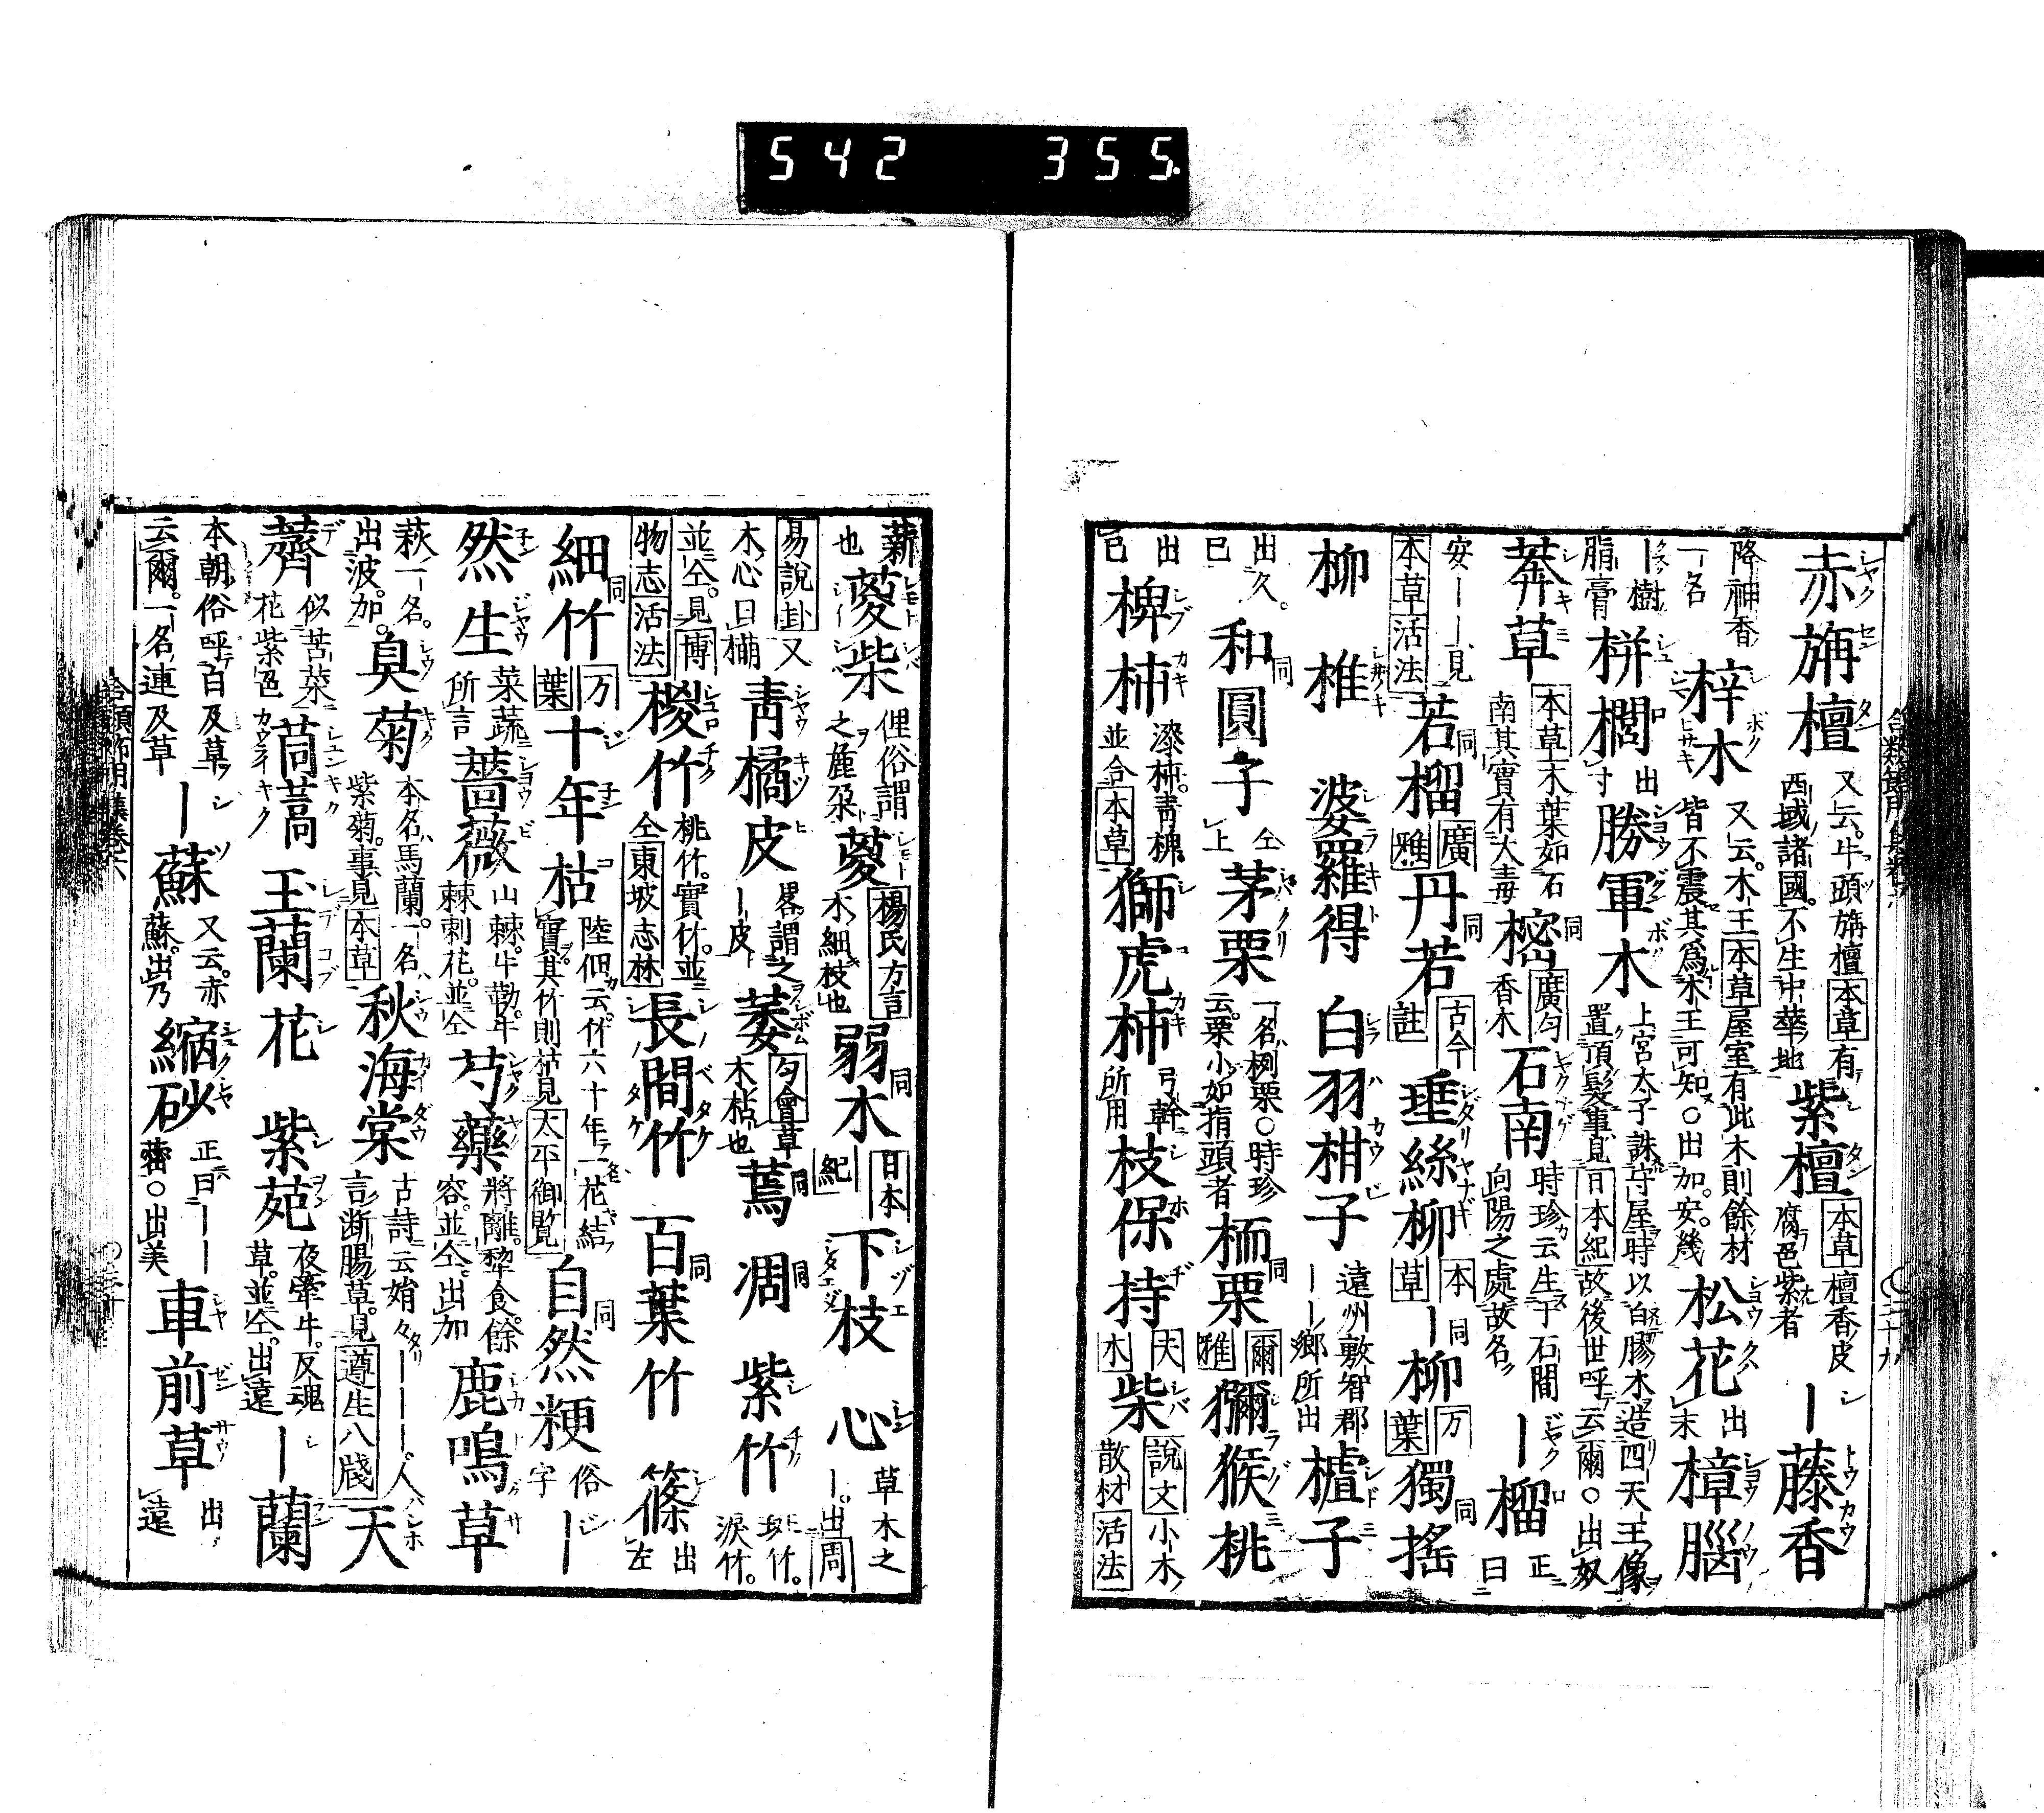 542 355.
赤旃檀 又云。牛頭旃檀 本草 有 西域諸國。不生中華地 紫檀 本草 檀香皮 腐色紫者 ー藤香
降神香 一名 梓木 又云。木王 本草 屋室有此木則餘材 皆不震其爲木王可知。○出加。安。幾 松花 出末 樟腦
ー樹 脂膏 栟櫚 出寸 勝軍木 上宮太子誅守屋時以白膠木造四天王像 置頂髮事見 日本紀 故後世呼云爾○出奴
莽草 本草 木葉如石 南其實有大毒 樒 廣匀 香木 石南 時珍云生于石間 向陽之處故名 ー榴 正曰
安ーー見 本草 活法 若榴 廣雅 丹若 古今註 垂絲柳 本草 ー柳 万葉 獨搖
柳 椎 婆羅得 白羽柑子 遠州敷智郡 ーー鄉所出 櫨子
出久。巳 和圓子 仝上 茅栗 一名栵栗○時珍 云。栗小如指頭者 栭栗 爾雅 獼猴桃
出巳 椑柿 漆柿。青椑 並合 本草 獅虎柿 弓幹 所用 枝保持 夫木 柴 說文 小木 散材 活法
薪也 薆柴 俚俗謂 之麁朶 薆 楊氏方言 木細枝也 弱木 日本紀 下枝 心 草木之 ー。出 周
易說卦 又 木心曰橗 青橘皮 畧謂之 ー皮 萎 匀會 草 木枯也 蔫 凋 紫竹 斑竹。淚竹。
並仝。見 博 物志 活法 椶竹 桃竹。實竹。並 仝 東坡志林 長間竹 百葉竹 篠 出左
細竹 万葉 十年枯 陸佃云。竹六十年一花結 實。其竹則枯見 太平御覧 自然粳 俗字 ー
然生 菜蔬 所言 薔薇 山棘。牛勒。牛 棘刺花。並仝 芍藥 將離。犂食。餘 容。並仝。出加 鹿鳴草
萩一名。出波。加。 臭菊 本名馬蘭。一名 紫菊。事見 本草 秋海棠 古詩云娟々ーーー人 言断腸草。見 遵生八牋 天
薺 似苦菜 花紫色 茼蒿 玉蘭花 紫苑 夜牽牛。反魂 草。並仝。出遠 ー蘭
本朝俗呼百及草 云爾。一名連及草 ー蘇 又云。赤 蘇。出乃 縮砂 正曰ーー 蔤○出美 車前草 出遠
合類節用集卷六